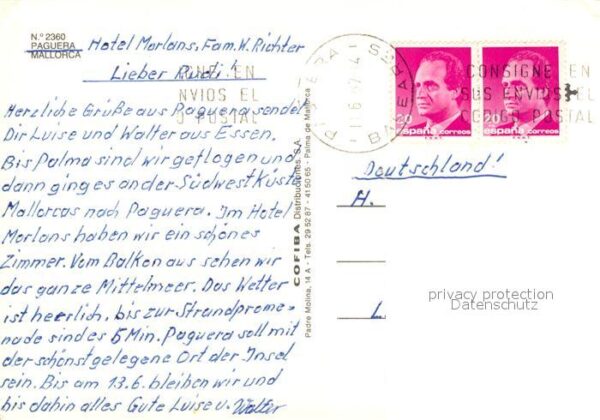 N.º 2360
PAGUERA
MALLORCA
Hotel Morlans, Fam. W. Richter
Lieber Rudi!
Herzliche Grüße aus Paguera senden
Dir Luise und Walter aus Essen.
Bis Palma sind wir geflogen und
dann ging es an der Südwest Küste
Mallorcas nach Paguera. Im Hotel
Morlans haben wir ein schönes
Zimmer. Vom Balkon aus sehen wir
das ganze Mittelmeer. Das Wetter
ist heerlich, bis zur Strandprome=
nade sind es 5 Min. Paguera soll mit
der schönst gelegene Ort der Insel
sein. Bis am 13.6. bleiben wir und
bis dahin alles Gute Luise u. Walter
COFIBA Distribuciones, S.A.
Padre Molina, 14 A - Tels. 29 52 87 - 41 50 65 - Palma de Mallorca
CONSIGNE EN
SUS ENVIOS EL
CODIGO POSTAL
BALEAR
20
españa correos
20
españa correos
CONSIGNE EN
SUS ENVIOS EL
CODIGO POSTAL
Deutschland!
H.
L
privacy protection
Datenschutz